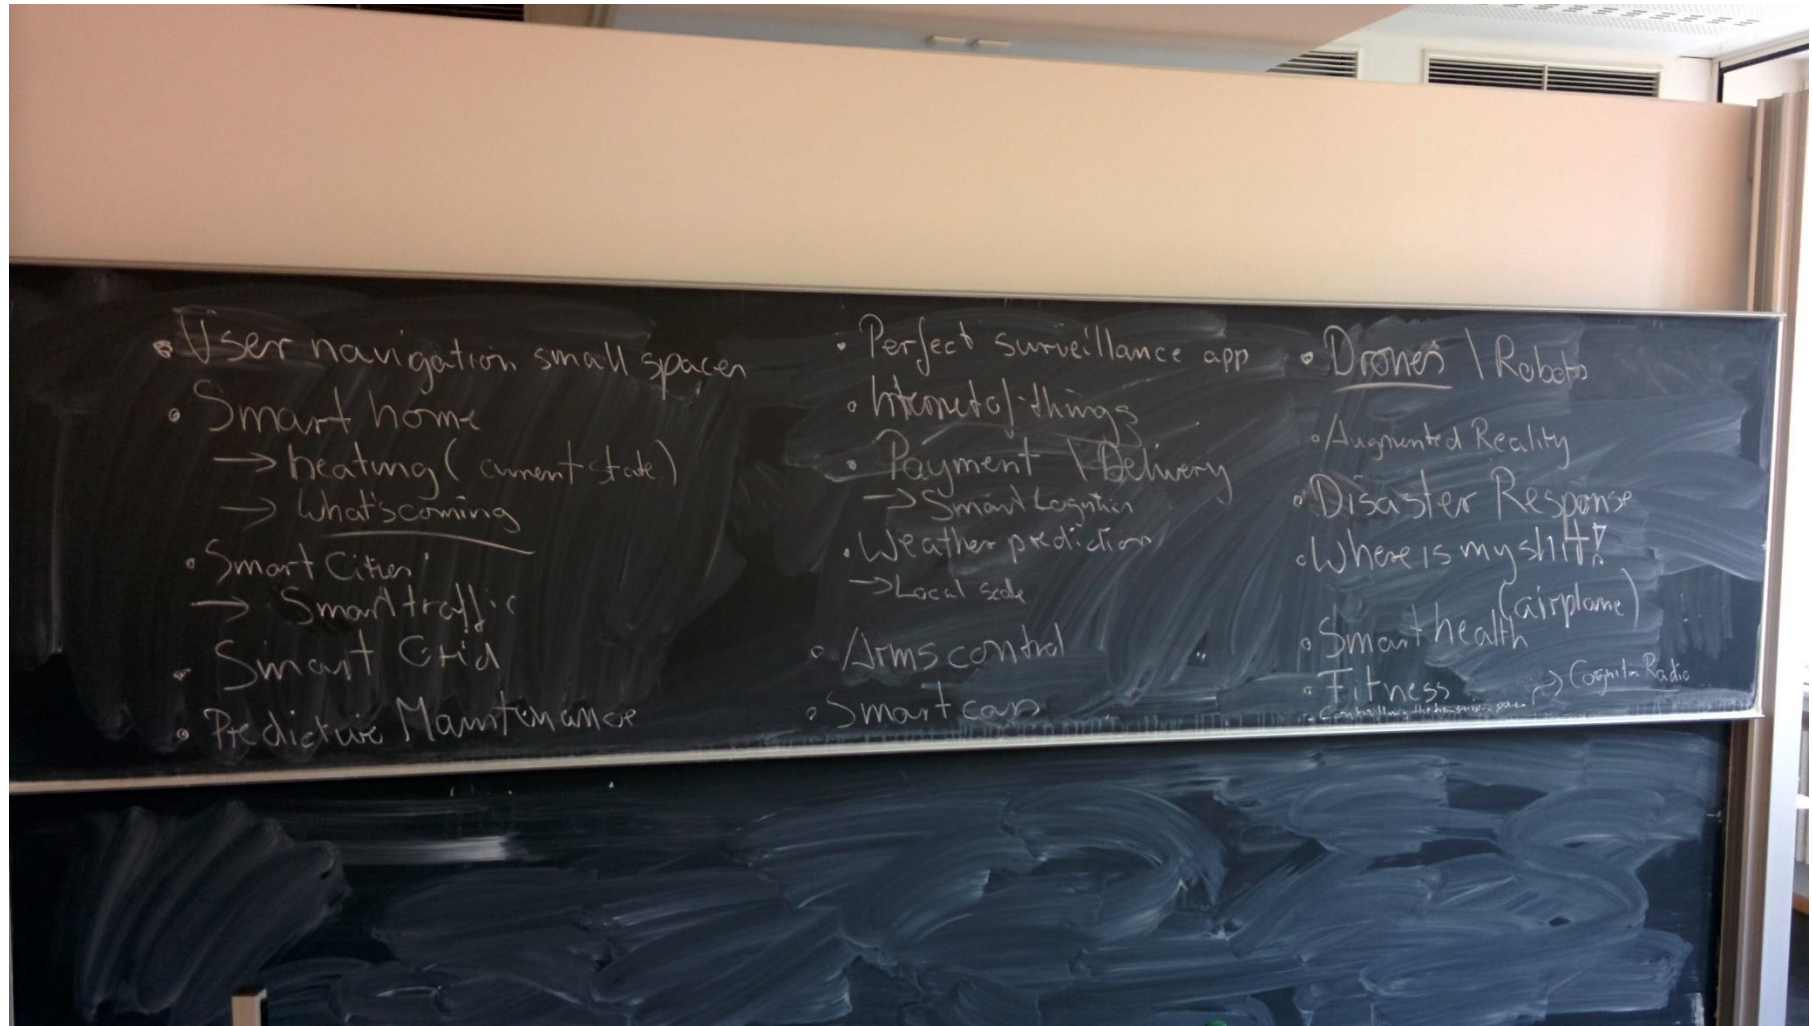 • User navigation small spaces
• Smart home
→ heating (current state)
→ What's coming
• Smart Cities
→ Smart traffic
• Smart Grid
• Predictive Maintenance
• Perfect surveillance app
• Internet of things
• Payment \ Delivery
→ Smart Logistics
• Weather prediction
→ Local scale
• Arms control
• Smart cars
• Drones \ Robots
• Augmented Reality
• Disaster Response
• Where is my shit!?
(airplane)
• Smart health
• Fitness
→ Cognitive Radio
• Controlling the transmission power